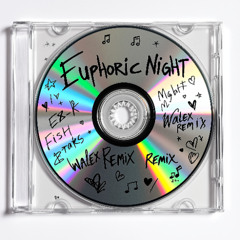 EUPHORIC NIGHT
Ex-R
FisH
walex
REMIX
walex REMIX REMIX